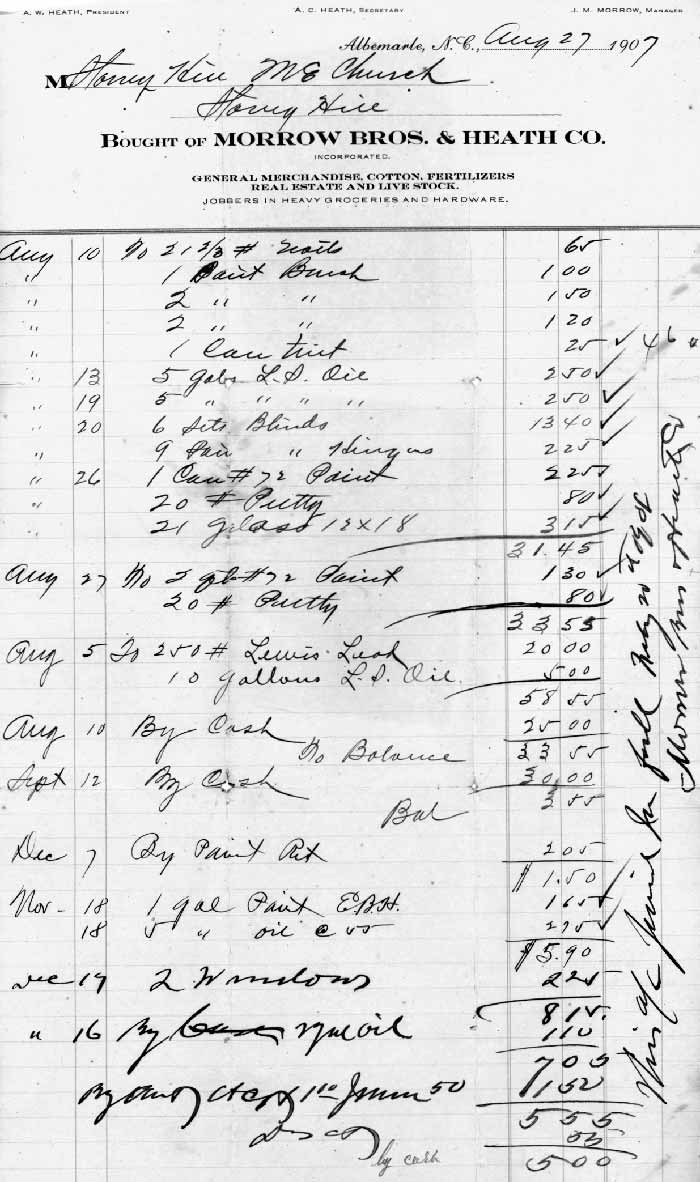 A. W. HEATH, PRESIDENT A. C. HEATH, SECRETARY J. M. MORROW, MANAGER
Albemarle, N. C., Aug 27 1907
M Stoney Hill M E Church
Stoney Hill
BOUGHT OF MORROW BROS. & HEATH CO.
INCORPORATED.
GENERAL MERCHANDISE, COTTON, FERTILIZERS
REAL ESTATE AND LIVE STOCK.
JOBBERS IN HEAVY GROCERIES AND HARDWARE.
Aug 10 To 21 2/3 # Nails 65
" 1 Paint Brush 1 00
" 2 " " 1 50
" 2 " " 1 20
" 1 Can Tint 25
" 13 5 gals L.S. Oil 2 50
" 19 5 " " " " 2 50
" 20 6 Sets Blinds 13 40
" 9 Pair " Hinges 2 25
" 26 1 Can # 72 Paint 2 25
" 20 # Putty 80
" 21 glass 12x18 3 15
31.45
Aug 27 To 2 # 72 Paint 1 30
20 # Putty 80
33 55
Aug 5 To 250 # Lewis Lead 20 00
10 gallons L.S. Oil 5 00
58 55
Aug 10 By Cash 25 00
To Balance 33 55
Sept 12 By Cash 30.00
Bal 3 55
Dec 7 By Paint Ret 2 05
$ 1.50
Nov - 18 1 gal Paint 1 65
18 5 " oil @ 55 2 75
$ 5.90
Dec 17 2 Windows 2 25
8 15
" 16 By oil 1 10
7 05
By 50 1 50
5 55
55
by cash 5 00
46
This a/c in full
Morrow Bros & Heath Co